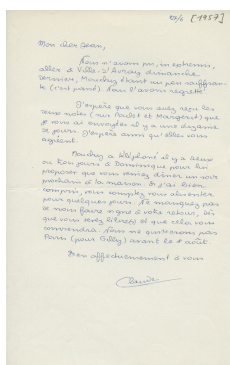 20/6 [1957]
Mon cher Jean,
Nous n'avons pu, in extremis,
aller à Ville-d'Avray dimanche
dernier, Moucky étant un peu souffran-
te (c'est passé). Nous l'avons regretté.
J'espère que vous avez reçu les
deux notes (sur Poulet et Margerit) que
je vous ai envoyées il y a une dizaine
de jours. J'espère aussi qu'elles vous
agréent.
a téléphoné il y a deux
ou trois jours à Dominique pour lui
proposer que vous veniez dîner un soir
prochain à la maison. Si j'ai bien
compris, vous comptez vous absenter
pour quelques jours. Ne manquez pas
de nous faire signe à votre retour, dès
que vous serez libres et que cela vous
conviendra. Nous ne quitterons pas
Paris (pour ) avant le 1er août.
Bien affectueusement à vous
Claude